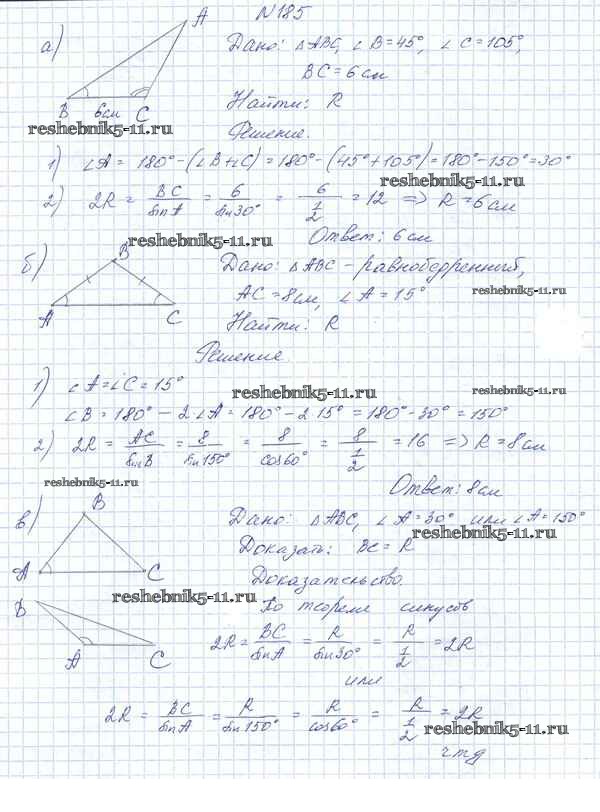 N 185
а)
A
B 6см C
Дано: △ABC, ∠B=45°, ∠C=105°,
BC = 6см
Найти: R
reshebnik5-11.ru
Решение.
1) ∠A = 180° - (∠B+∠C) = 180° - (45°+105°) = 180° - 150° = 30°
reshebnik5-11.ru
2) 2R = BC/sin A = 6/sin 30° = 6/(1/2) = 12 => R = 6см
reshebnik5-11.ru
Ответ: 6см
б)
B
A C
Дано: △ABC - равнобедренный,
AC = 8см, ∠A = 15°
reshebnik5-11.ru
Найти: R
Решение.
1) ∠A = ∠C = 15°
reshebnik5-11.ru
reshebnik5-11.ru
∠B = 180° - 2∠A = 180° - 2·15° = 180° - 30° = 150°
2) 2R = AC/sin B = 8/sin 150° = 8/cos 60° = 8/(1/2) = 16 => R = 8см
reshebnik5-11.ru
Ответ: 8см
в)
B
A C
Дано: △ABC, ∠A = 30° или ∠A = 150°
reshebnik5-11.ru
Доказать: BC = R
Доказательство.
reshebnik5-11.ru
B
A C
По теореме синусов
2R = BC/sin A = R/sin 30° = R/(1/2) = 2R
или
2R = BC/sin A = R/sin 150° = R/cos 60° = R/(1/2) = 2R
reshebnik5-11.ru
чтд